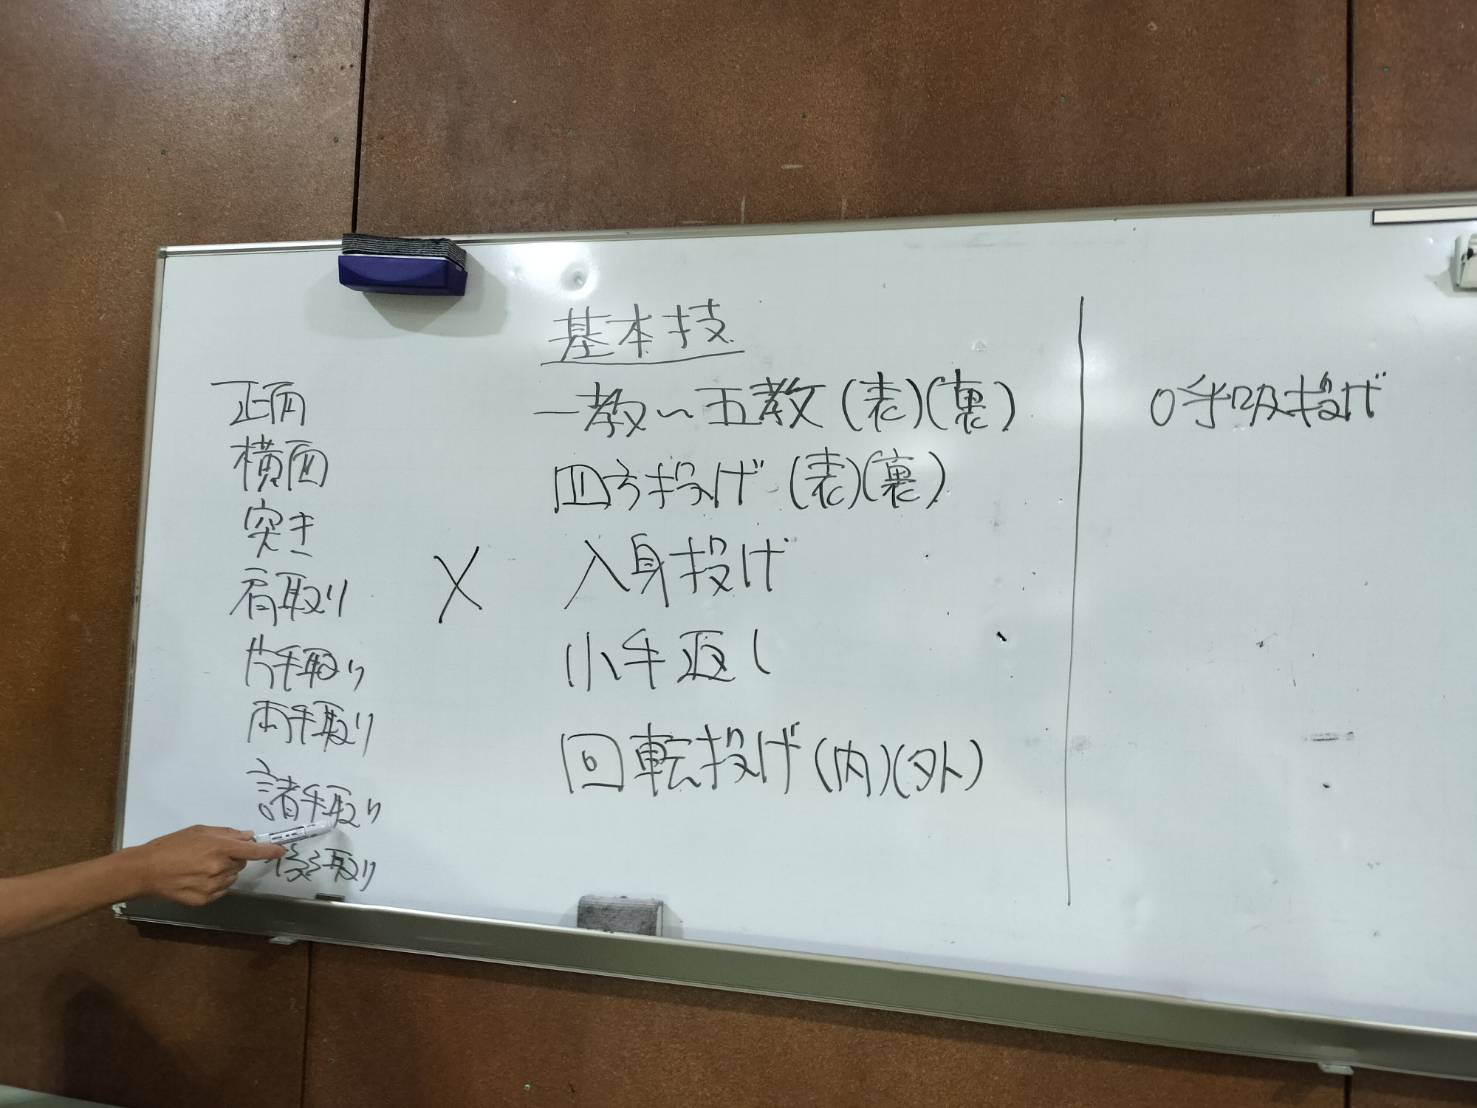 基本技
正面
横面
突き
肩取り
片手取り
両手取り
諸手取り
後取り
×
一教〜五教(表)(裏)
四方投げ(表)(裏)
入身投げ
小手返し
回転投げ(内)(外)
呼吸投げ